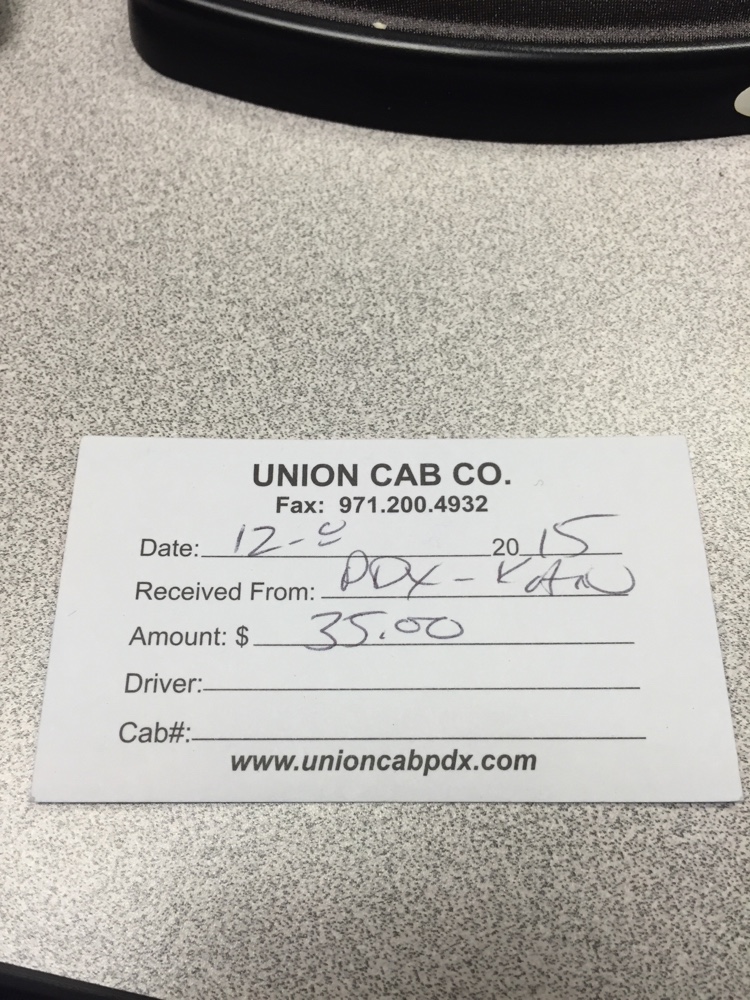 UNION CAB CO.
Fax: 971.200.4932
Date: 12-8 2015
Received From: PDX -
Amount: $ 35.00
Driver:
Cab#:
www.unioncabpdx.com